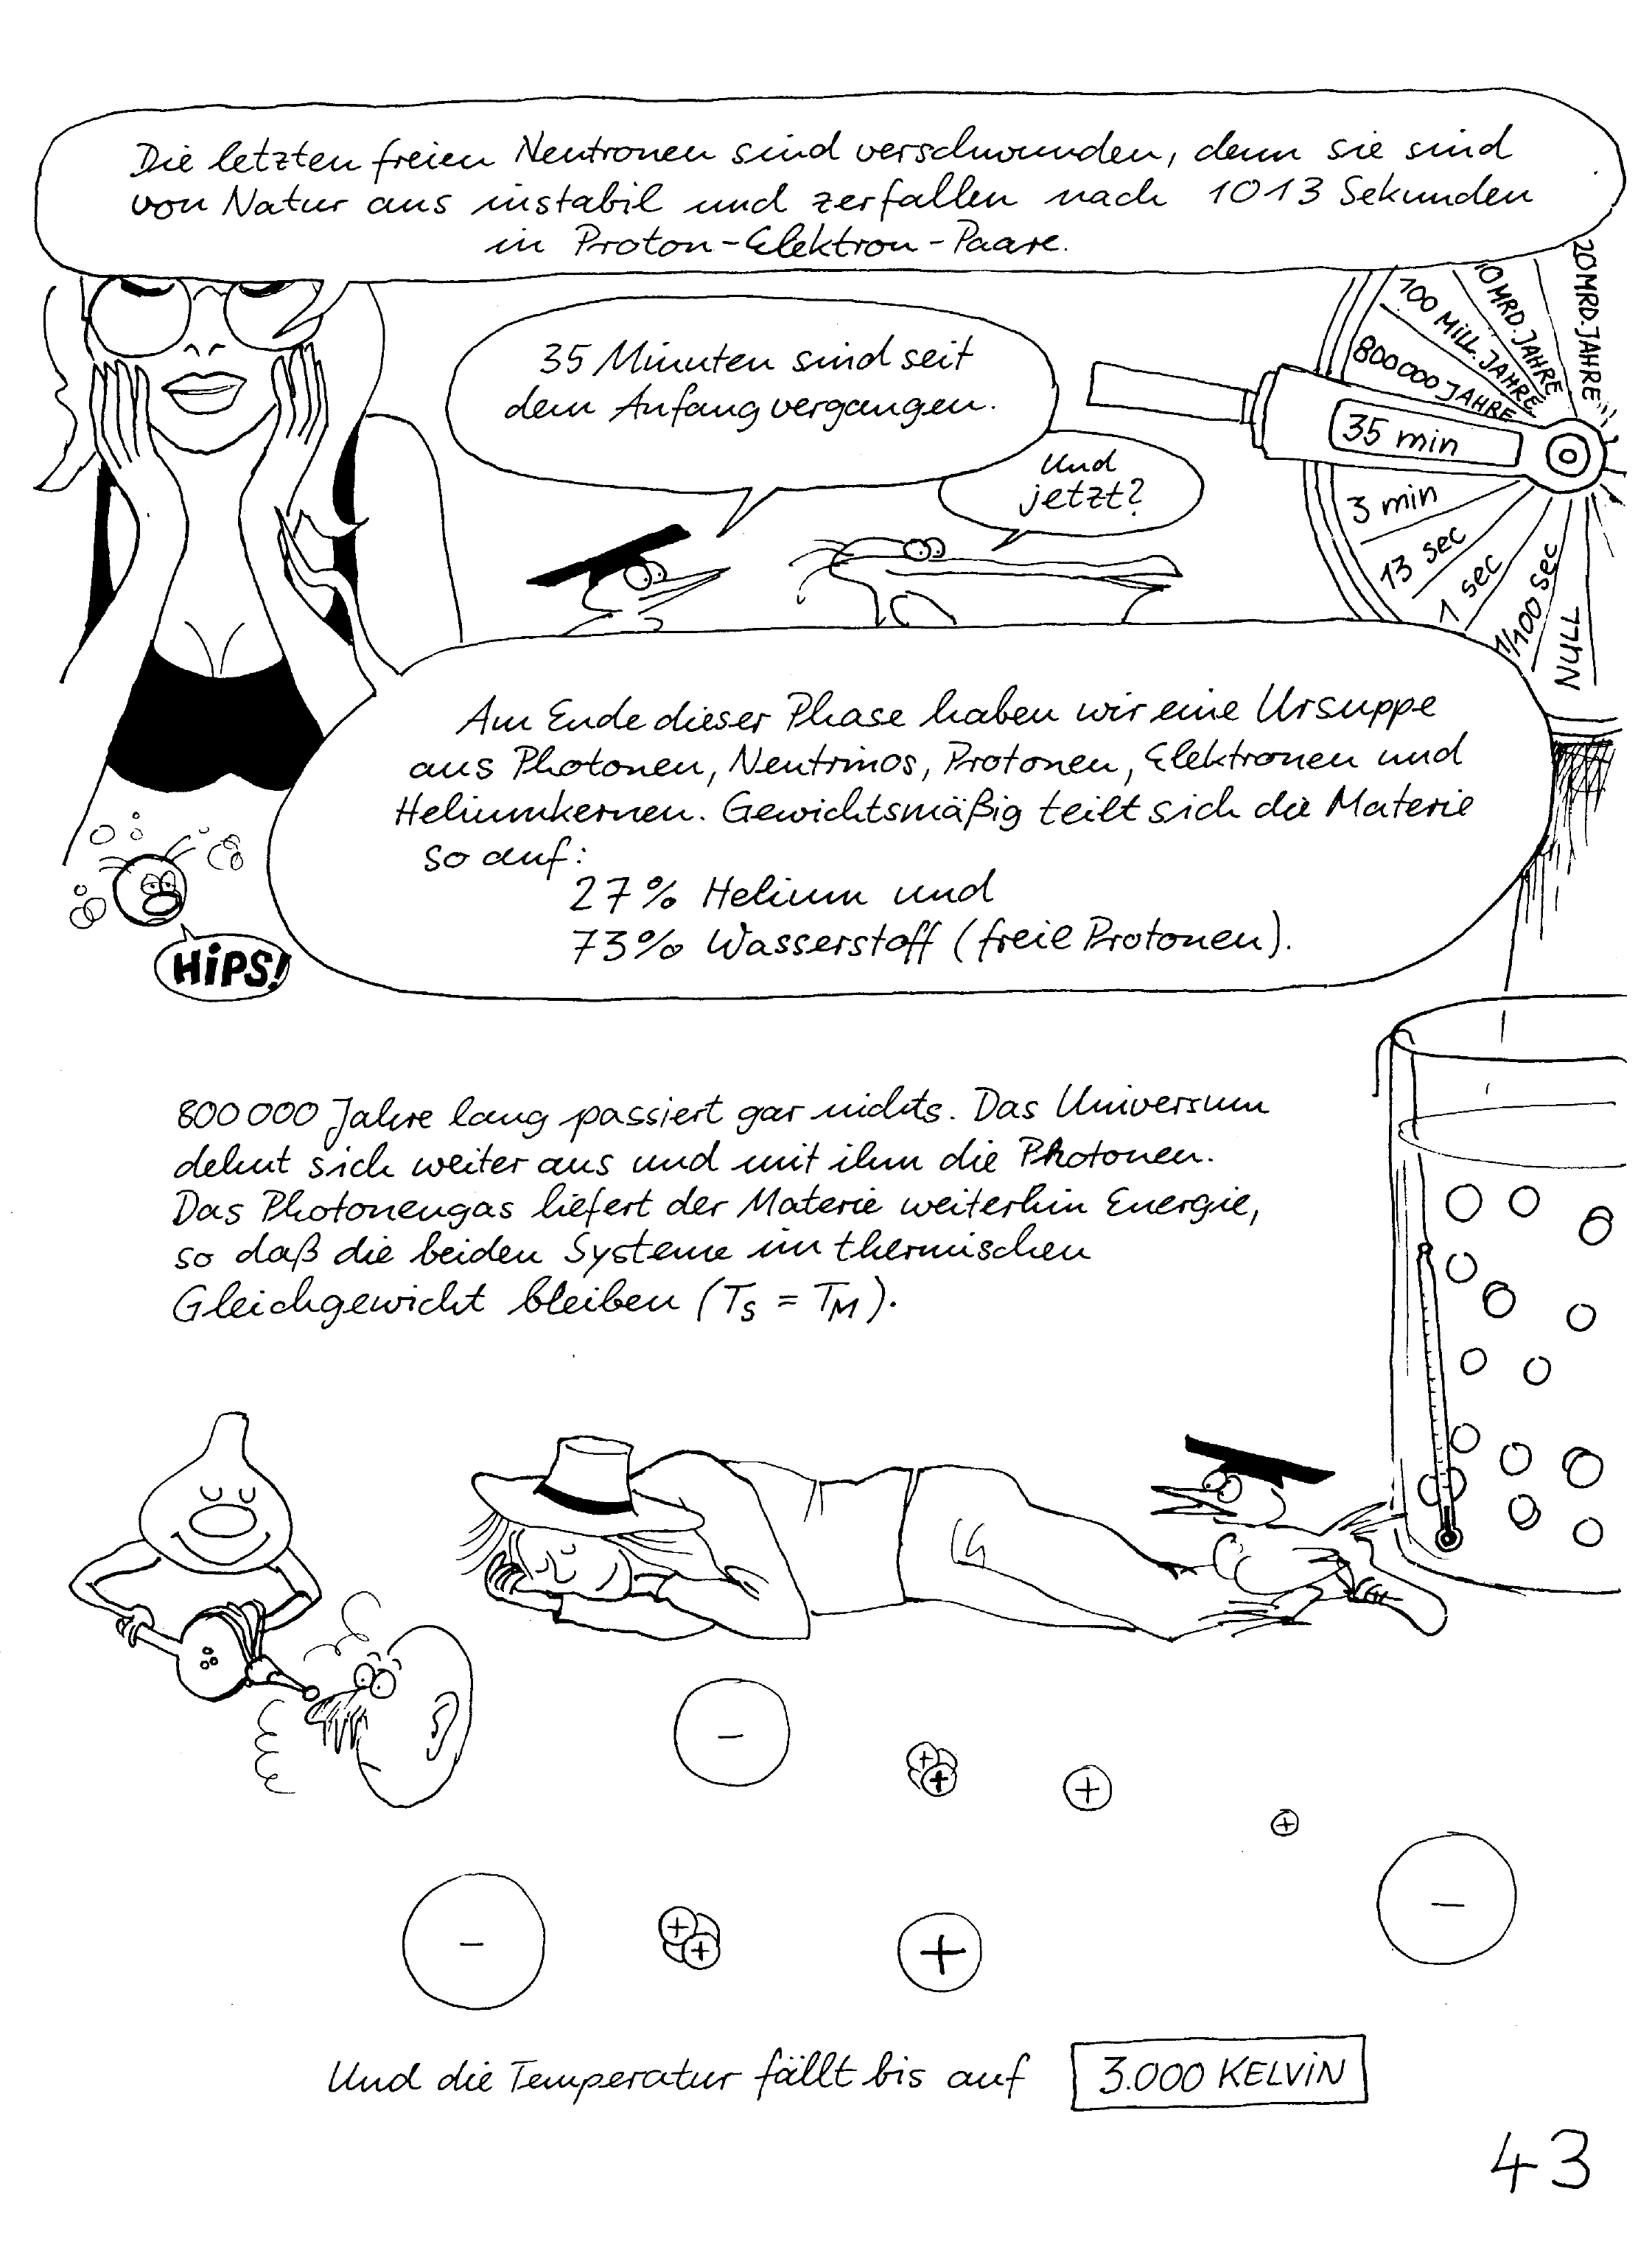 Die letzten freien Neutronen sind verschwunden, denn sie sind
von Natur aus instabil und zerfallen nach 1013 Sekunden
in Proton-Elektron-Paare.
35 Minuten sind seit
dem Anfang vergangen.
Und
jetzt?
20 MRD. JAHRE
10 MRD. JAHRE
100 MiLL. JAHRE
800000 JAHRE
35 min
3 min
13 sec
1 sec
1/100 sec
NULL
Am Ende dieser Phase haben wir eine Ursuppe
aus Photonen, Neutrinos, Protonen, Elektronen und
Heliumkernen. Gewichtsmäßig teilt sich die Materie
so auf:
27% Helium und
73% Wasserstoff (freie Protonen).
HiPS!
800 000 Jahre lang passiert gar nichts. Das Universum
dehnt sich weiter aus und mit ihm die Photonen.
Das Photonengas liefert der Materie weiterhin Energie,
so daß die beiden Systeme im thermischen
Gleichgewicht bleiben (TS = TM).
-
+
+
+
+
-
-
+
+
+
Und die Temperatur fällt bis auf 3.000 KELViN
43